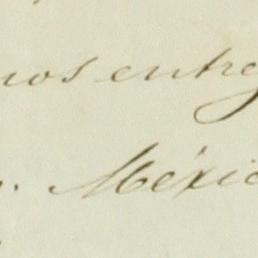 nos entre
. Méxic